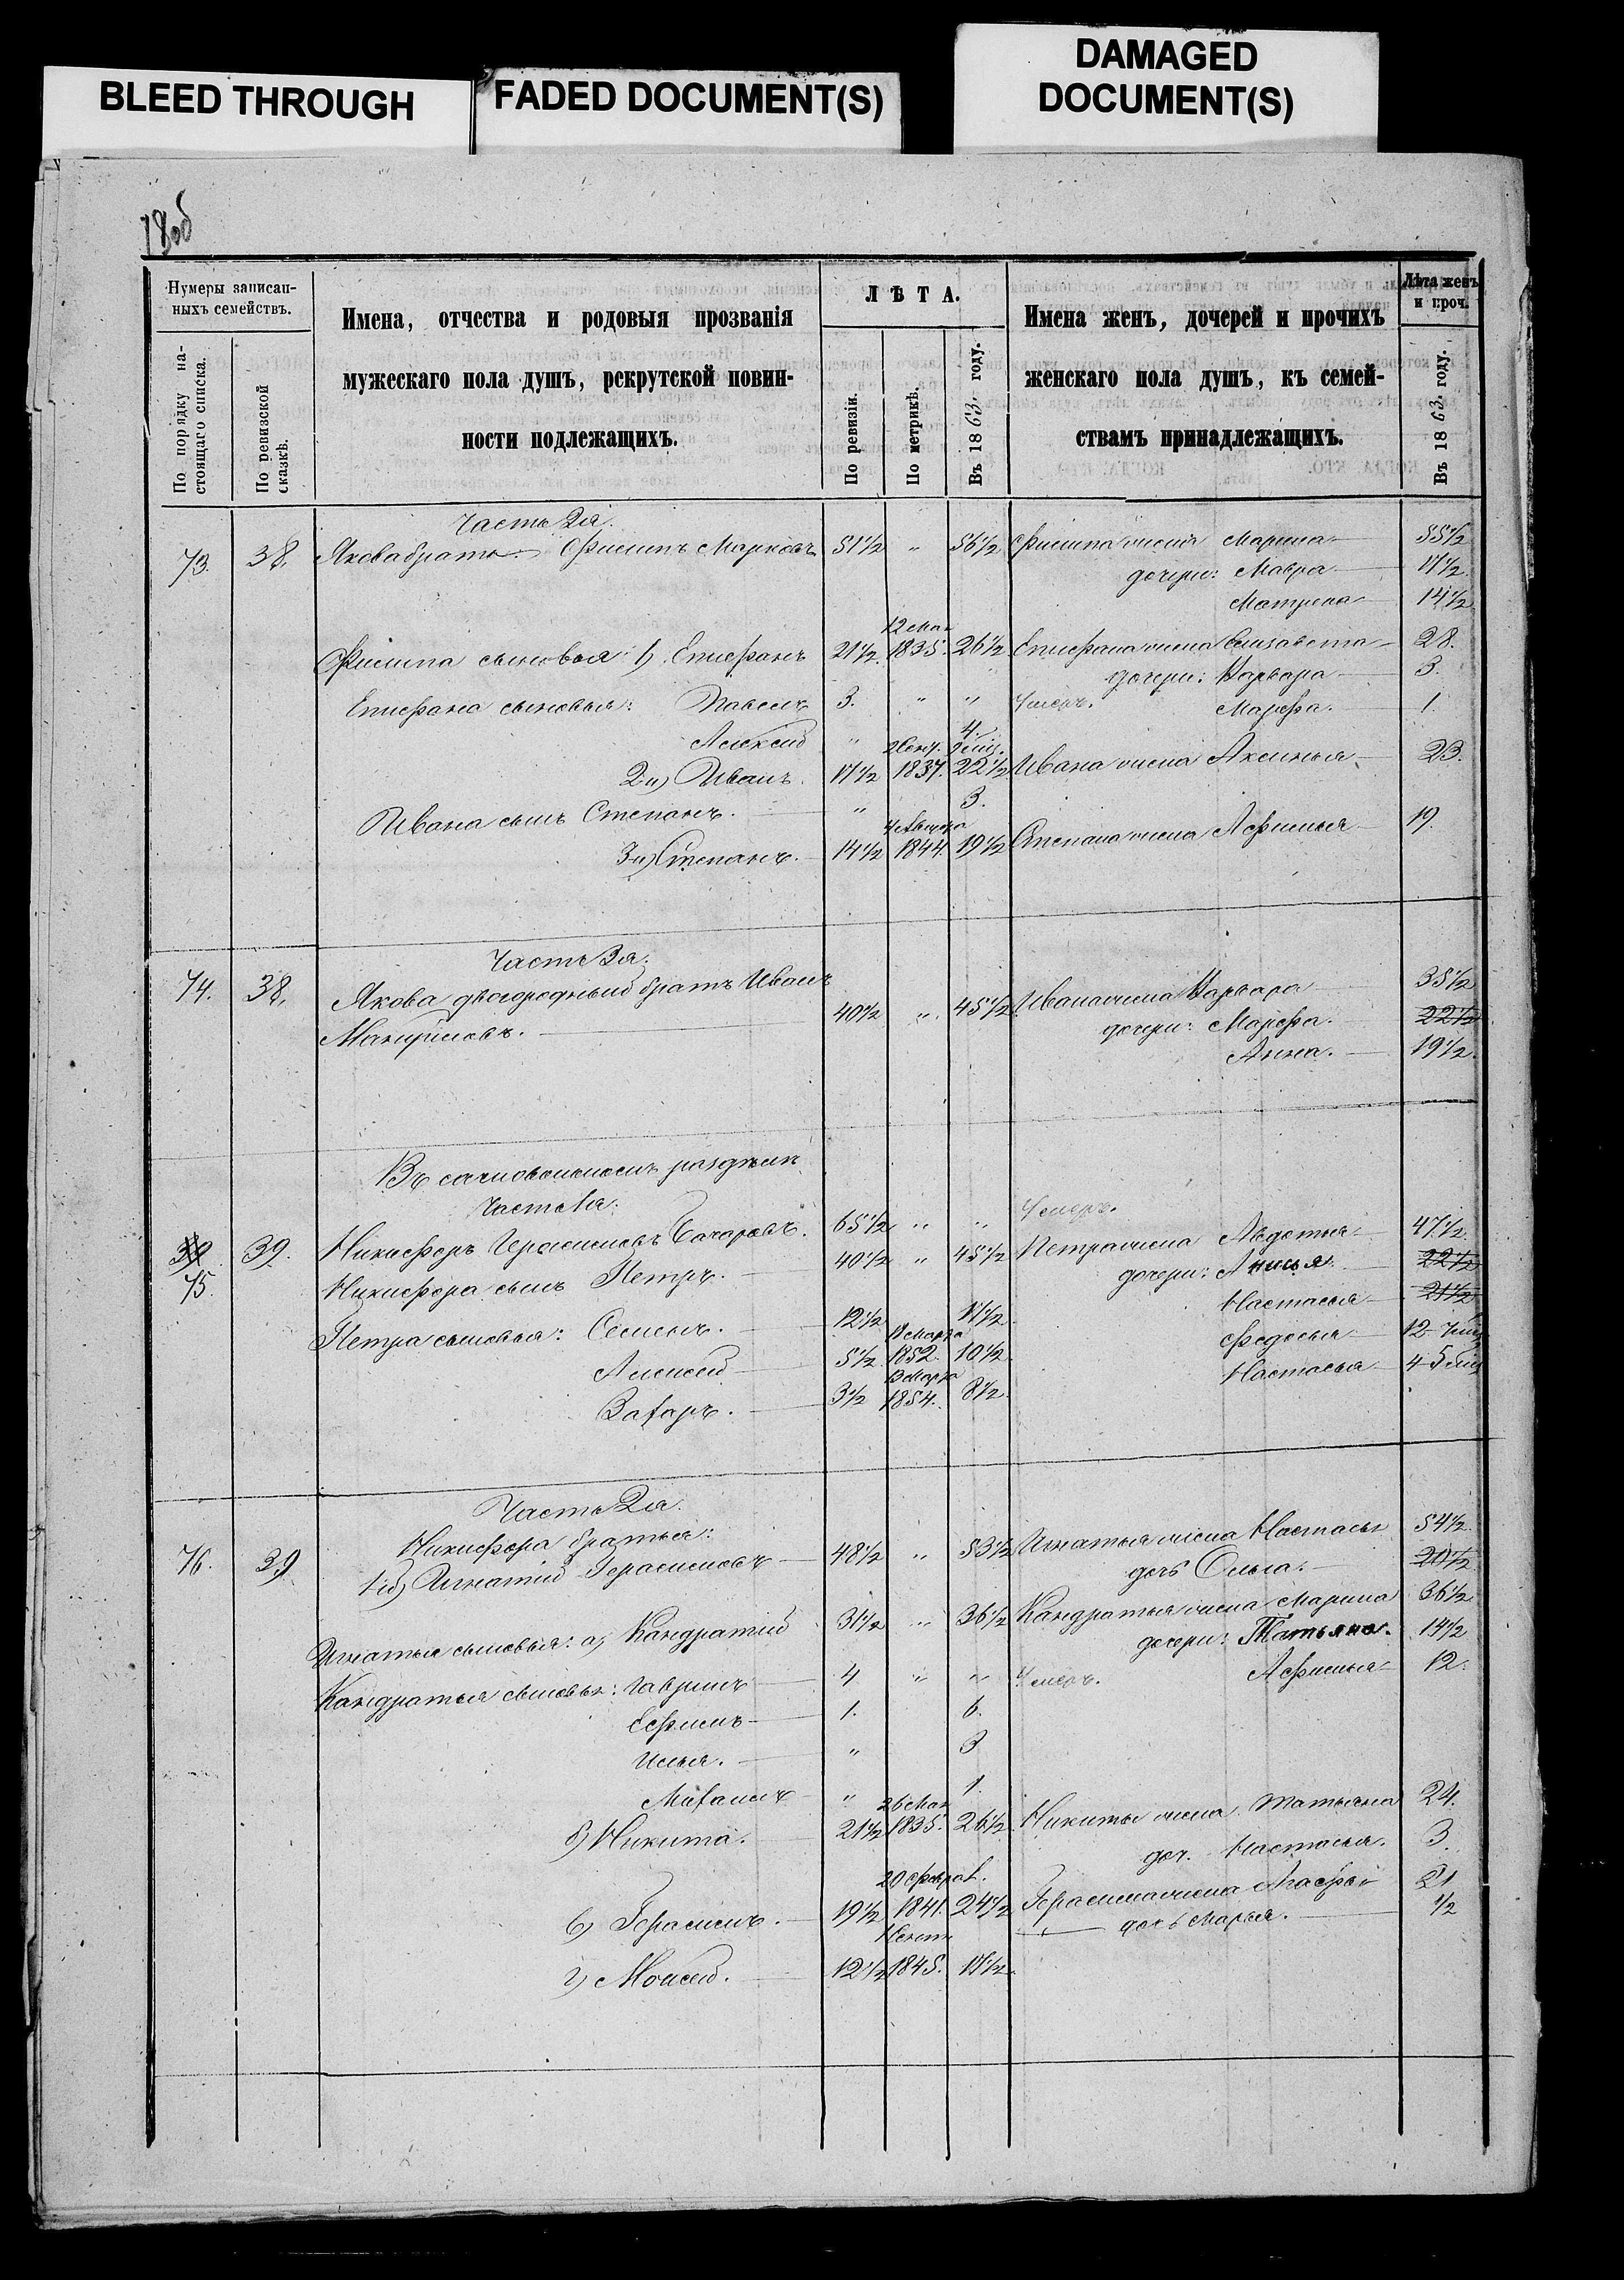 BLEED THROUGH
FADED DOCUMENT(S)
DAMAGED
DOCUMENT(S)
18об
Нумеры записан-
ныхъ семействъ.
По порядку на-
стоящаго списка.
По ревизской
сказкѣ.
Имена, отчества и родовыя прозванія
мужескаго пола душъ, рекрутской повин-
ности подлежащихъ.
ЛѢТА.
По ревизіи.
По метрикѣ.
Въ 1863. году.
Имена женъ, дочерей и прочихъ
женскаго пола душъ, къ семей-
ствамъ принадлежащихъ.
Лѣта женъ
и проч.
Въ 1863. году.
Часть 2я.
73. 38. Якова братъ Филипъ Марковъ 51½ " 56½ Филипа жена Марина 55½
дочери: Мавра 17½
Матрена 14½
12 Мая
Филипа сыновья 1) Епифанъ 21½ 1835. 26½ Епифана жена Елизавета 28.
дочери: Варвара 3.
Епифана сыновья: Павелъ 3. " " Умеръ. Марфа. 1.
Алексей " 4.
2й) Иванъ. 17½ 1837. 22½ Ивана жена Аксинья 23.
Ивана сынъ Степанъ. " 3.
3й) Степанъ. 14½ 1844. 19½ Степана жена Афимья 19.
Часть 3я.
74. 38. Якова двоюродный братъ Иванъ 40½ " 45½ Ивана жена Варвара 35½
дочери: Марфа. 22½
Анна. 19½
Въ самовольномъ раздѣлѣ
Часть 1я.
39 75. 39. Никифоръ Герасимовъ Бочаровъ. 65½ " " Умеръ.
Никифора сынъ Петръ. 40½ " 45½ Петра жена Авдотья 47½
дочери: Анисья 22½
Настасья 21½
Петра сыновья: Семенъ. 12½ 17½ Федосья 12
Алексей 5½ 1852. 10½ Настасья 4
Марта
Захаръ. 3½ 1854. 8½
Часть 2я.
Никифора братья:
76. 39 1й) Игнатій Герасимовъ 48½ " 53½ Игнатья жена Настасья 54½
дочь Ольга. 20½
Игнатья сыновья: а) Кандратій 31½ " 36½ Кандратья жена Марина 36½
дочери: Татьяна. 14½
Кандратья сыновья: Гаврилъ 4 " " Умеръ. Афимья 12.
Ефимъ 1. 6.
Илья. " 3
Михаилъ " 1.
26 Мая
б) Никита. 21½ 1835. 26½ Никиты жена Татьяна 24.
доч. Настасья. 3.
20 феврал.
в) Герасимъ. 19½ 1841. 24½ Герасима жена 21
дочь Марья. ½
г) Моисей. 12½ 1845. 17½